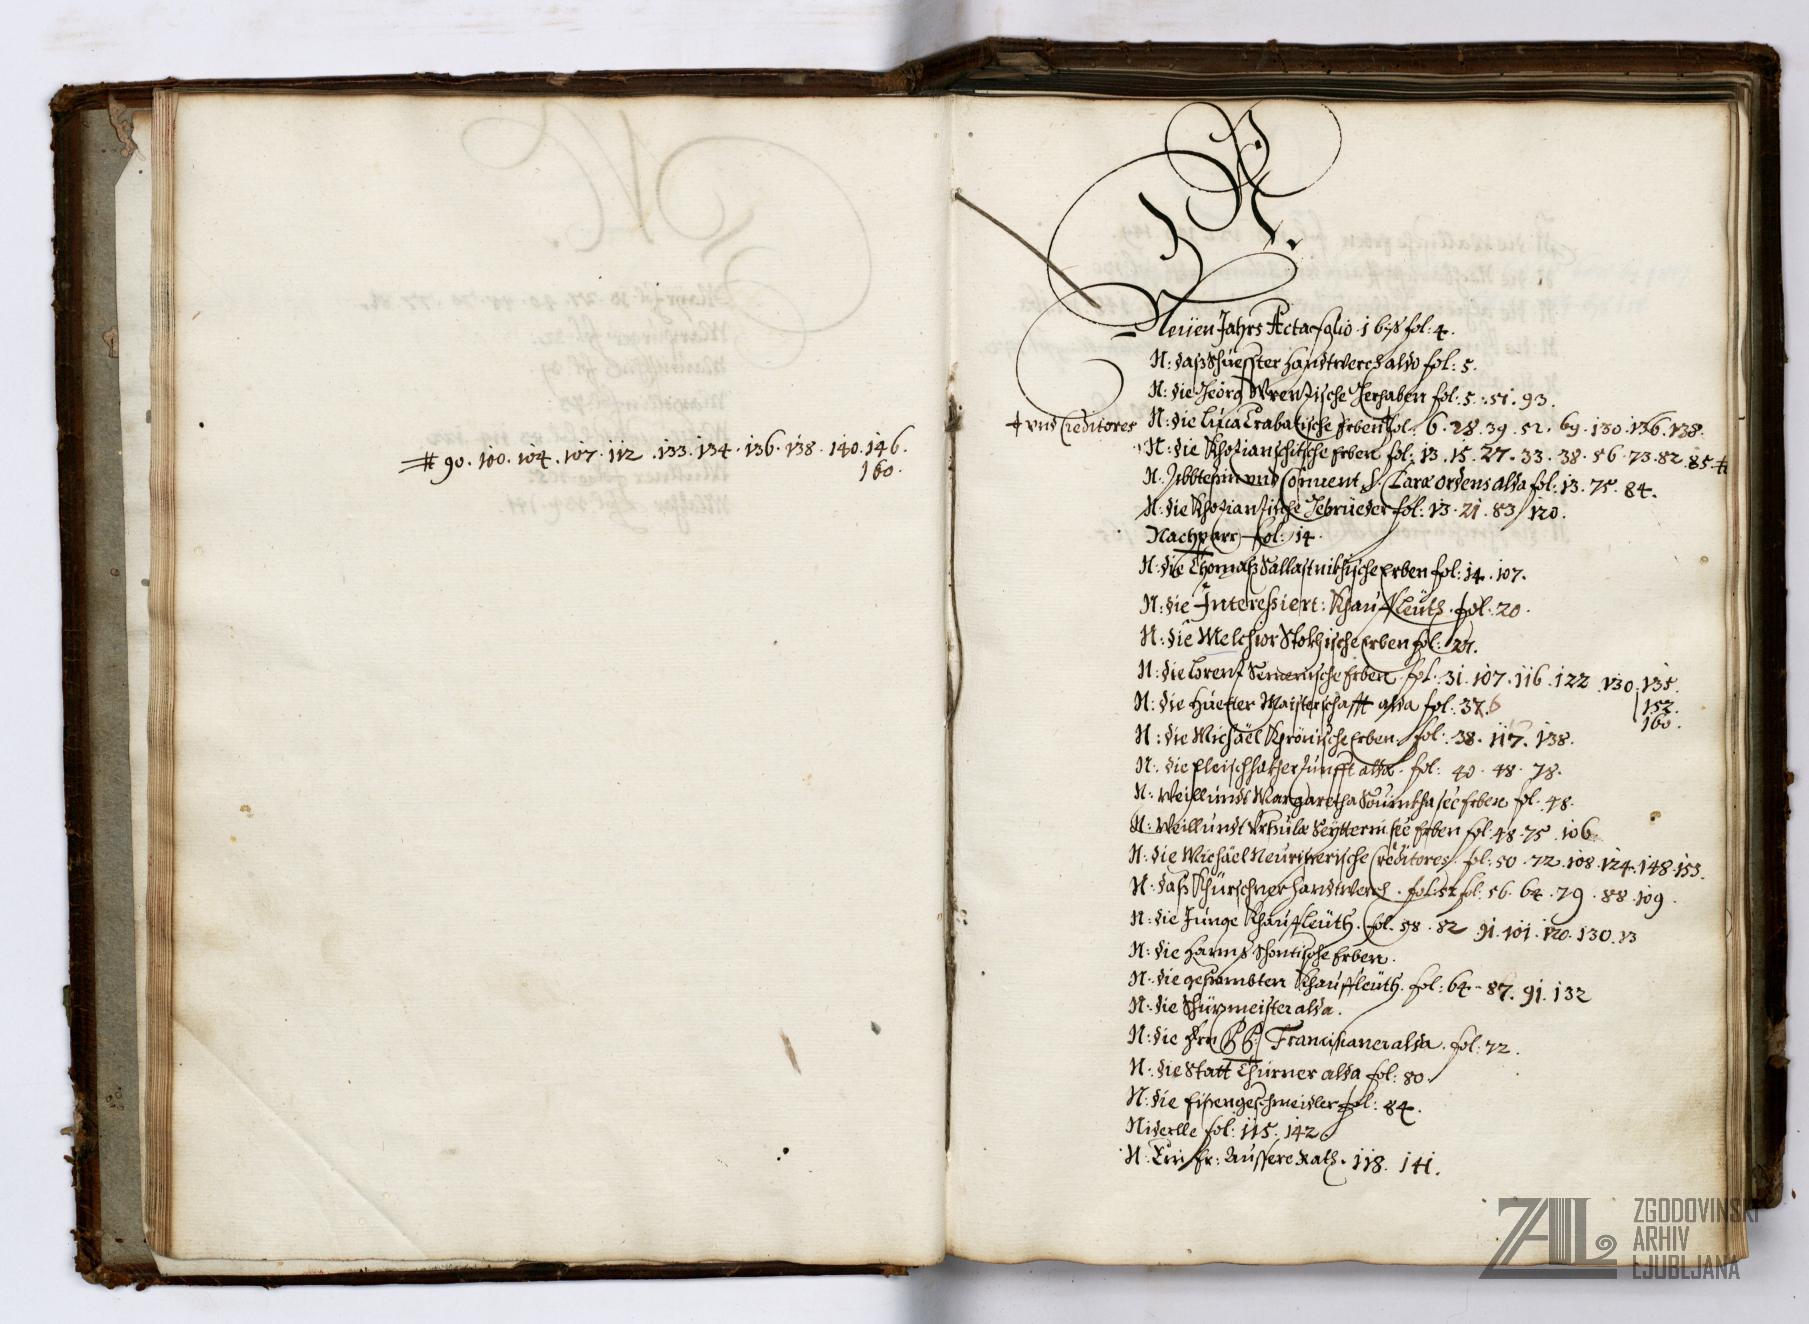 # 90. 100. 104. 107. 112. 133. 134. 136. 138. 140. 146.
160.
N.
Neüen Jahrs Acta folio 1 biß fol: 4.
N: daß Schuesster Handtwerch alda fol: 5.
N: die Geörg Wrenzische Gerhaben fol: 5. 51. 93.
† vnd Creditores N: die Luca Trabatische Erben fol: 6. 28. 39. 52. 69. 130. 136. 138.
N: die Khozianschitsche Erben fol: 13. 15. 27. 33. 38. 56. 73. 82. 85. #
N: Abbtesin vnd Conuent S. Claræ Ordens alda fol: 13. 75. 84.
N: die Khozianzische Gebrüeder fol: 13. 21. 83. 120.
Nachparr fol: 14.
N: die Thomaß Sallastnikhische Erben fol: 14. 107.
N: die Interessiert: Khauffleüth. fol: 20.
N: die Melchior Stokhische Erben fol: 27.
N: die Lorenz Semenische Erben. fol: 31. 107. 116. 122. 130. 135.
152.
160.
N: die Hueter Maisterschafft alda fol: 37.
N: die Michäel Khrönische Erben. fol: 38. 117. 138.
N: die Fleischhakher Zunfft alda. fol: 40. 48. 78.
N: Weillundt Margaretha Erben fol. 48.
N: Weillundt Vrsulæ Erben fol: 48. 75. 106
N: die Michäel Creditores. fol: 50. 72. 108. 124. 148. 153.
N: daß Khürschner Handtwerch. fol: 56. 64. 79. 88. 109.
N: die Junge Khauffleüth. fol. 58. 82. 91. 101. 120. 130. 13
N: die Hannß Erben.
N: die gesambten Khauffleüth. fol: 64. 87. 91. 132
N: die alda.
N: die Hrn PP: Franciscaner alda. fol: 72.
N: die Statt Thurner alda fol: 80.
N: die Eisengeschmeidler fol: 84.
Niderlle fol: 115. 142
N: Ein Er: Aussere Rath. 118. 141.
ZAL
ZGODOVINSKI
ARHIV
LJUBLJANA